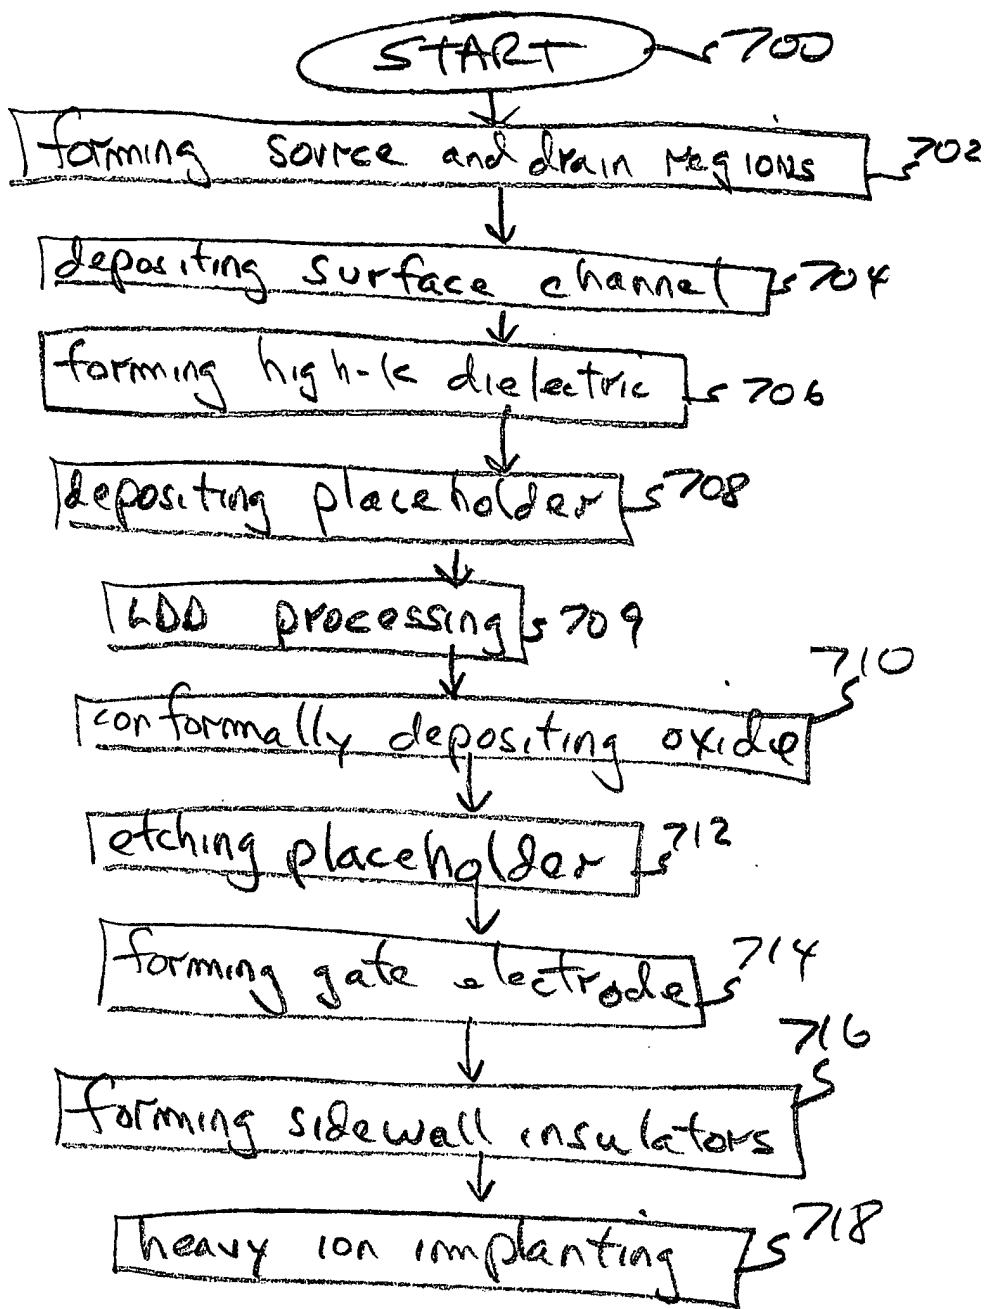 START 700
forming source and drain regions 702
depositing surface channel 704
forming high-k dielectric 706
depositing placeholder 708
LDD processing 709
710
conformally depositing oxide
etching placeholder 712
forming gate electrode 714
716
forming sidewall insulators
heavy ion implanting 718